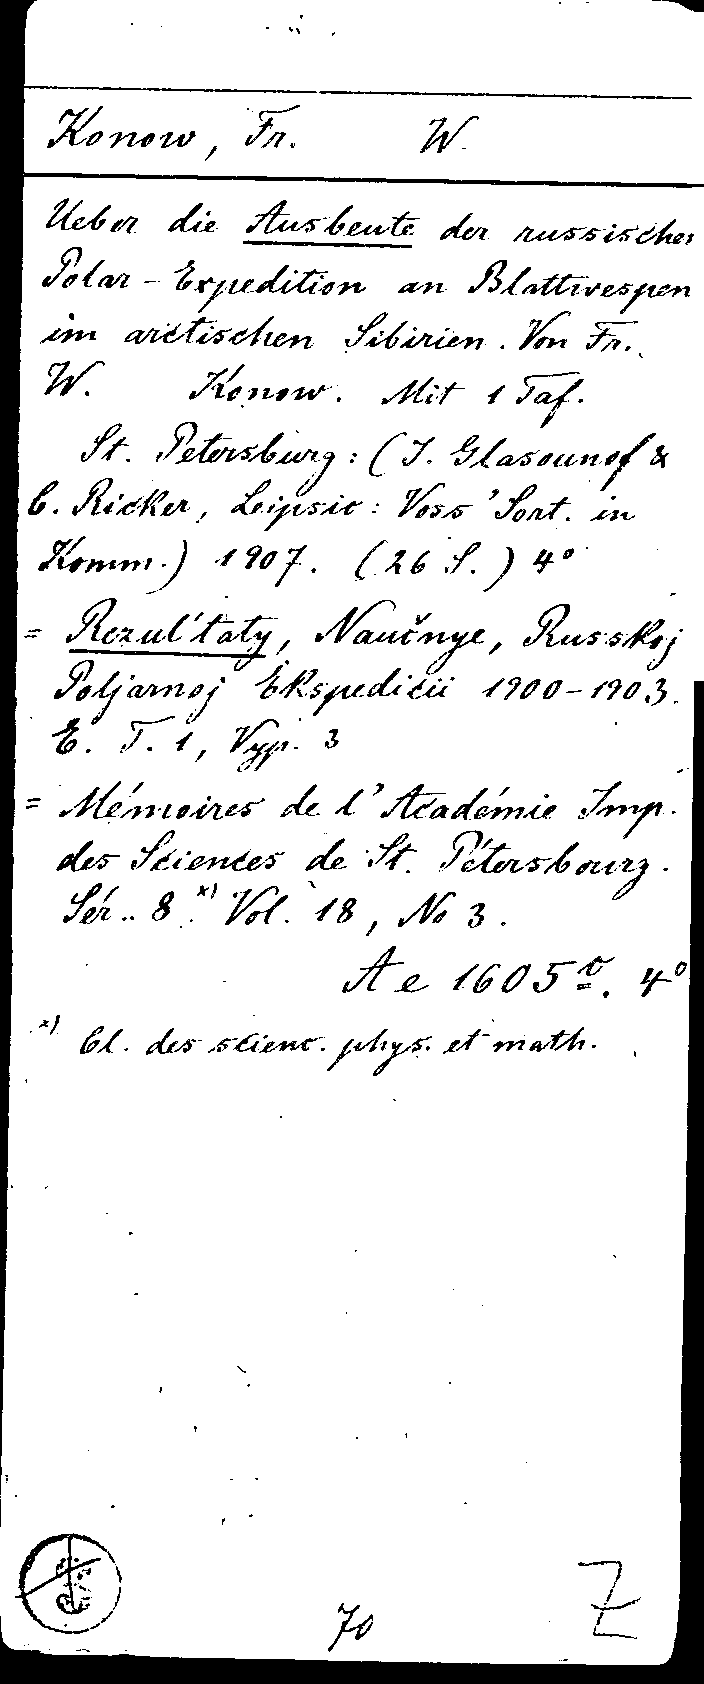 Konow, Fr. W.
Ueber die Ausbeute der russischen
Polar-Expedition an Blattwespen
im arctischen Sibirien. Von Fr.
W. Konow. Mit 1 Taf.
St. Petersburg: (J. Glasounof &
C. Ricker, Leipsic: Voss' Sort. in
Komm.) 1907. (26 S.) 4°
= Rezul'taty, Naučnye, Russkoj
Poljarnoj Ėkspedicii 1900-1903.
E. T. 1, Vyp. 3
= Mémoires de l'Académie Imp.
des Sciences de St. Pétersbourg.
Sér. 8.ˣ⁾ Vol. 18, No 3.
Ae 1605ᵛ. 4°
ˣ⁾ Cl. des scienc. phys. et math.
70
Z